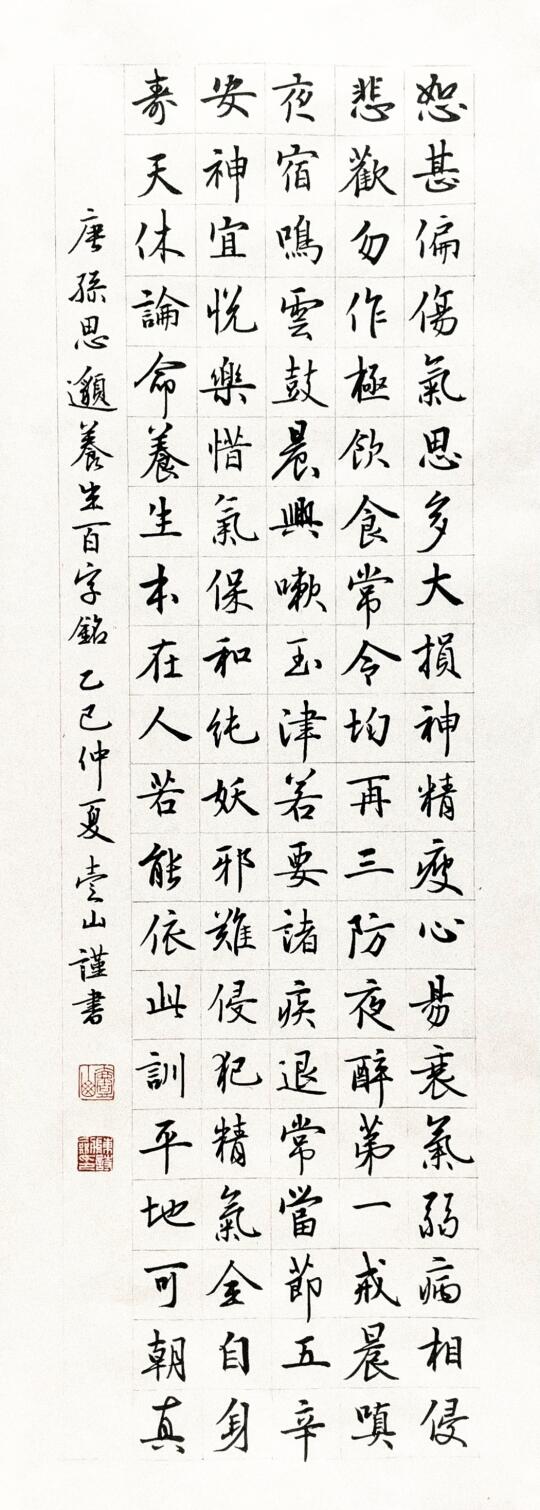 恕甚偏傷氣思多大損神精疲心易衰氣弱病相侵
悲歡勿作極飲食常令均再三防夜醉第一戒晨嗔
夜宿鳴雲鼓晨興嗽玉津若要諸疾退常當節五辛
安神宜悅樂惜氣保和純妖邪難侵犯精氣全自身
壽夭休論命養生本在人若能依此訓平地可朝真
唐孫思邈養生百字銘乙巳仲夏壹山謹書